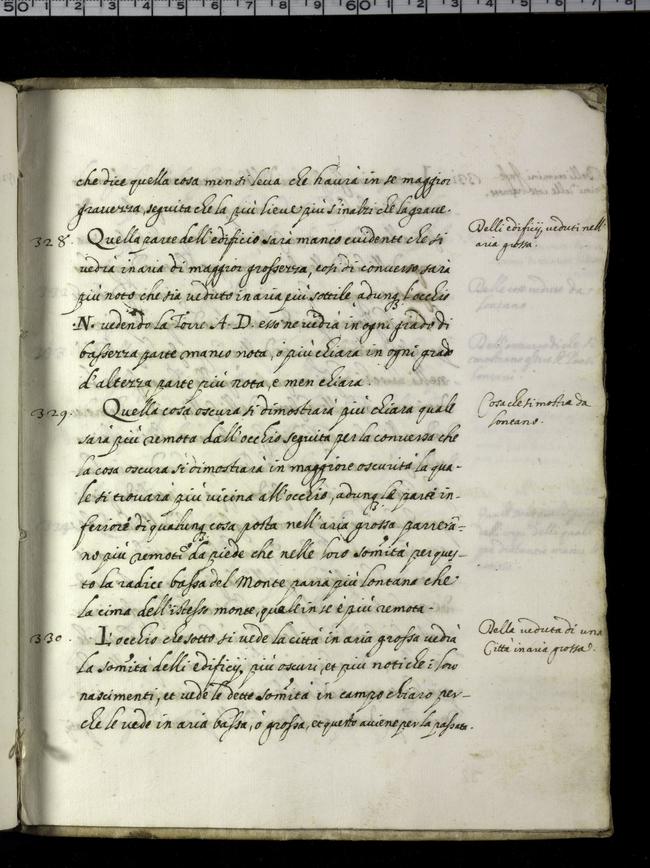 che dice quella cosa men si leva che haurà in se maggior
gravezza, seguita che la più lieve più s'inalzi che la grave.
328. Quella parte dell'edificio sarà manco evidente che si
Delli edificij, veduti nell'
aria grossa.
vedrà in aria di maggior grossezza, così di converso sarà
più noto che sia veduto in aria più sottile adunq; l'occhio
.N. vedendo la Torre .A.D. esso ne vedrà in ogni grado di
bassezza parte manco nota, o più chiara in ogni grado
d'altezza parte più nota, e men chiara.
329. Quella cosa oscura si dimostrarà più chiara quale
Cosa che si mostra da
lontano.
sarà più remota dall'occhio seguita per la conversa che
la cosa oscura si dimostrarà in maggiore oscurità la qua-
le si trovarà più vicina all'occhio, adunq; le parti in-
feriori di qualunq; cosa posta nell'aria grossa parrerà-
no più remoti da piede che nelle loro somità per ques-
to la radice bassa del Monte parrà più lontana che
la cima dell'istesso monte, quale in se è più remota.
330. L'occhio che sotto si vede la città in aria grossa vedrà
Della veduta di una
Città in aria grossa.
la somità delli edificij, più oscuri, et più noti che i loro
nascimenti, et vede le dette somità in campo chiaro per-
che le vede in aria bassa, ò grossa, et questo aviene per la passata.